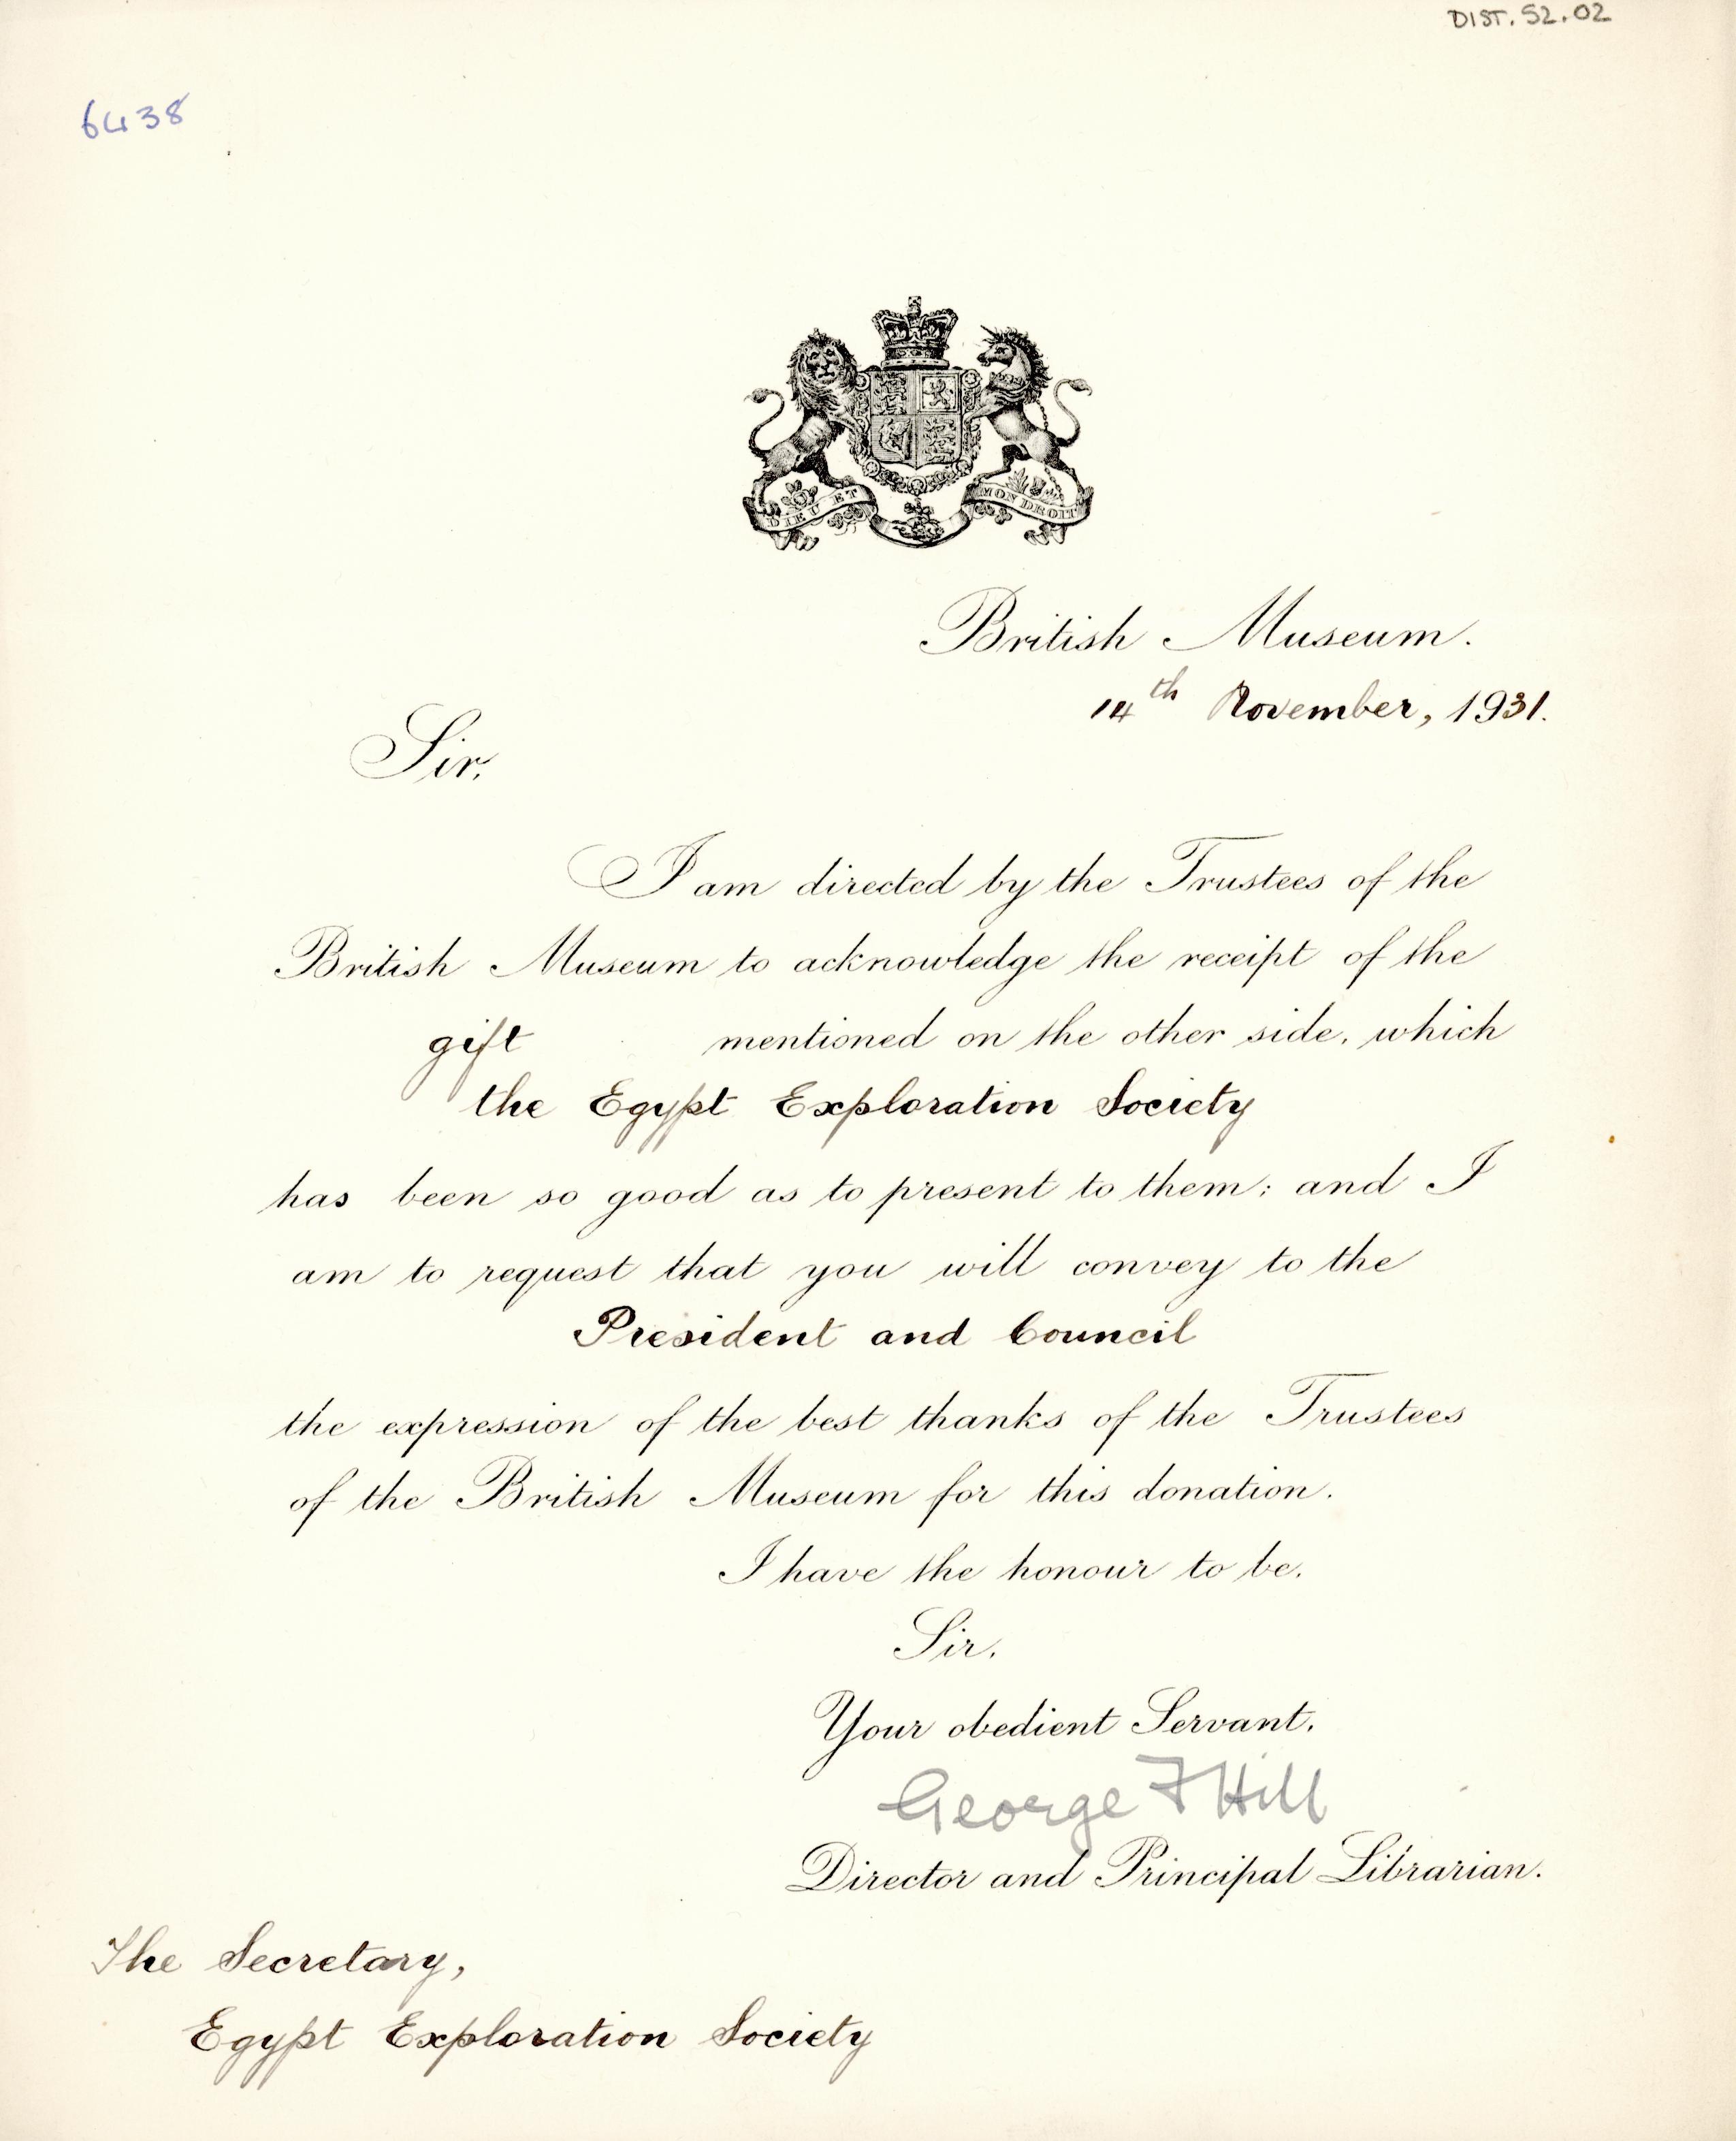 DIST. 52.02
6438
DIEU ET MON DROIT
British Museum.
14th November, 1931.
Sir,
I am directed by the Trustees of the
British Museum to acknowledge the receipt of the
gift mentioned on the other side, which
the Egypt Exploration Society
has been so good as to present to them; and I
am to request that you will convey to the
President and Council
the expression of the best thanks of the Trustees
of the British Museum for this donation.
I have the honour to be,
Sir,
Your obedient Servant,
George F Hill
Director and Principal Librarian.
The Secretary,
Egypt Exploration Society